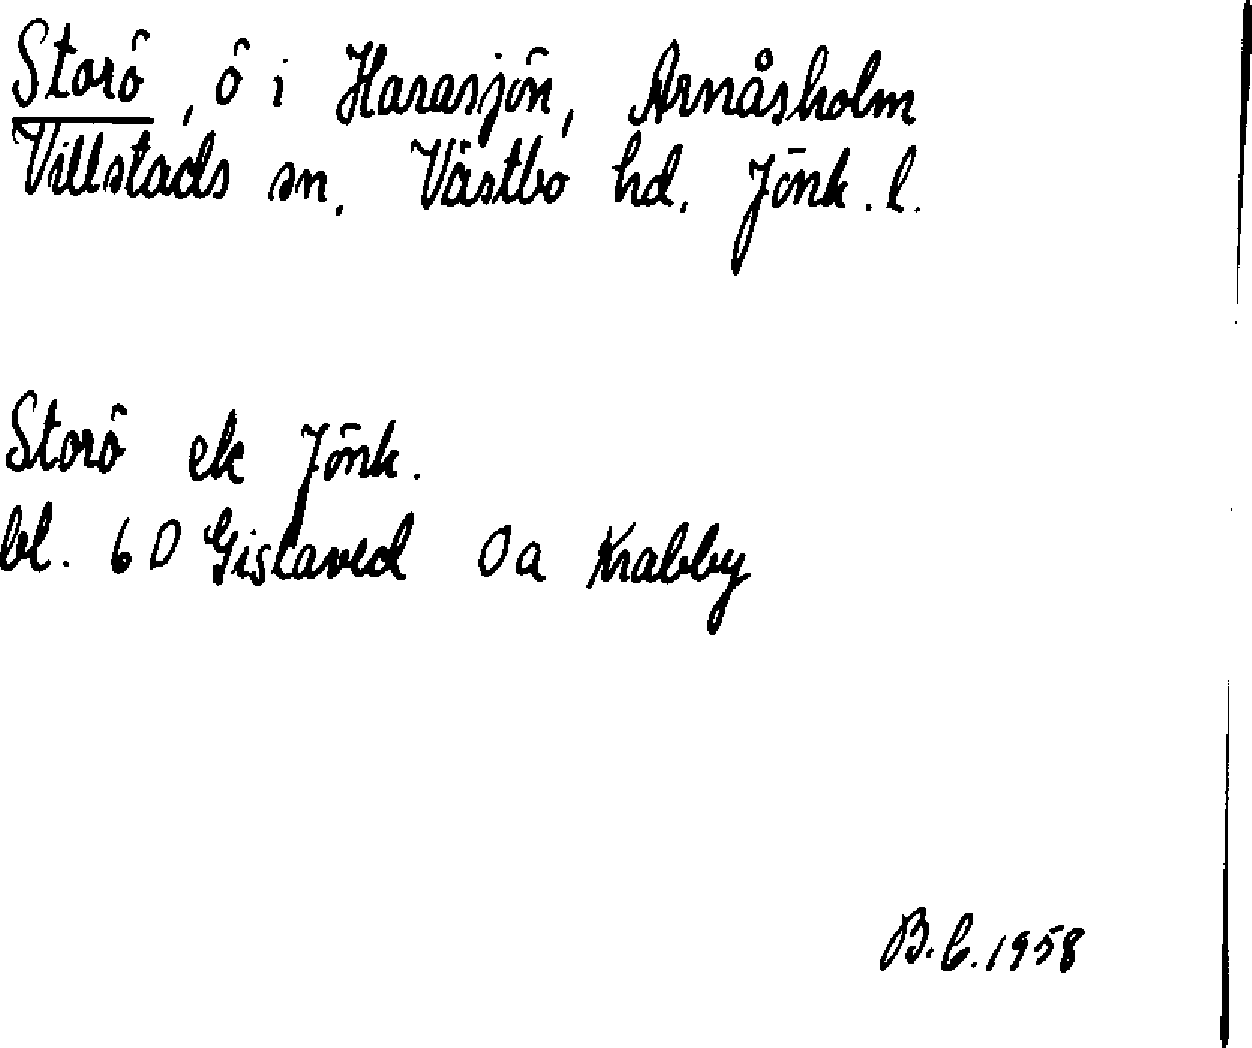 Storö, ö i Harasjön, Arnåsholm
Villstads sn. Västbo hd. Jönk. l.
Storö ek Jönk.
bl. 6 D Gislaved 0 a Krabby
B.C. 1958